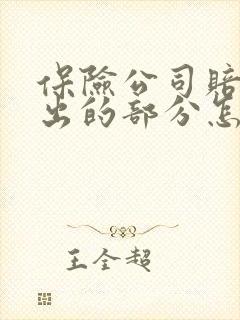 保险公司赔
出的部分怎
王全超